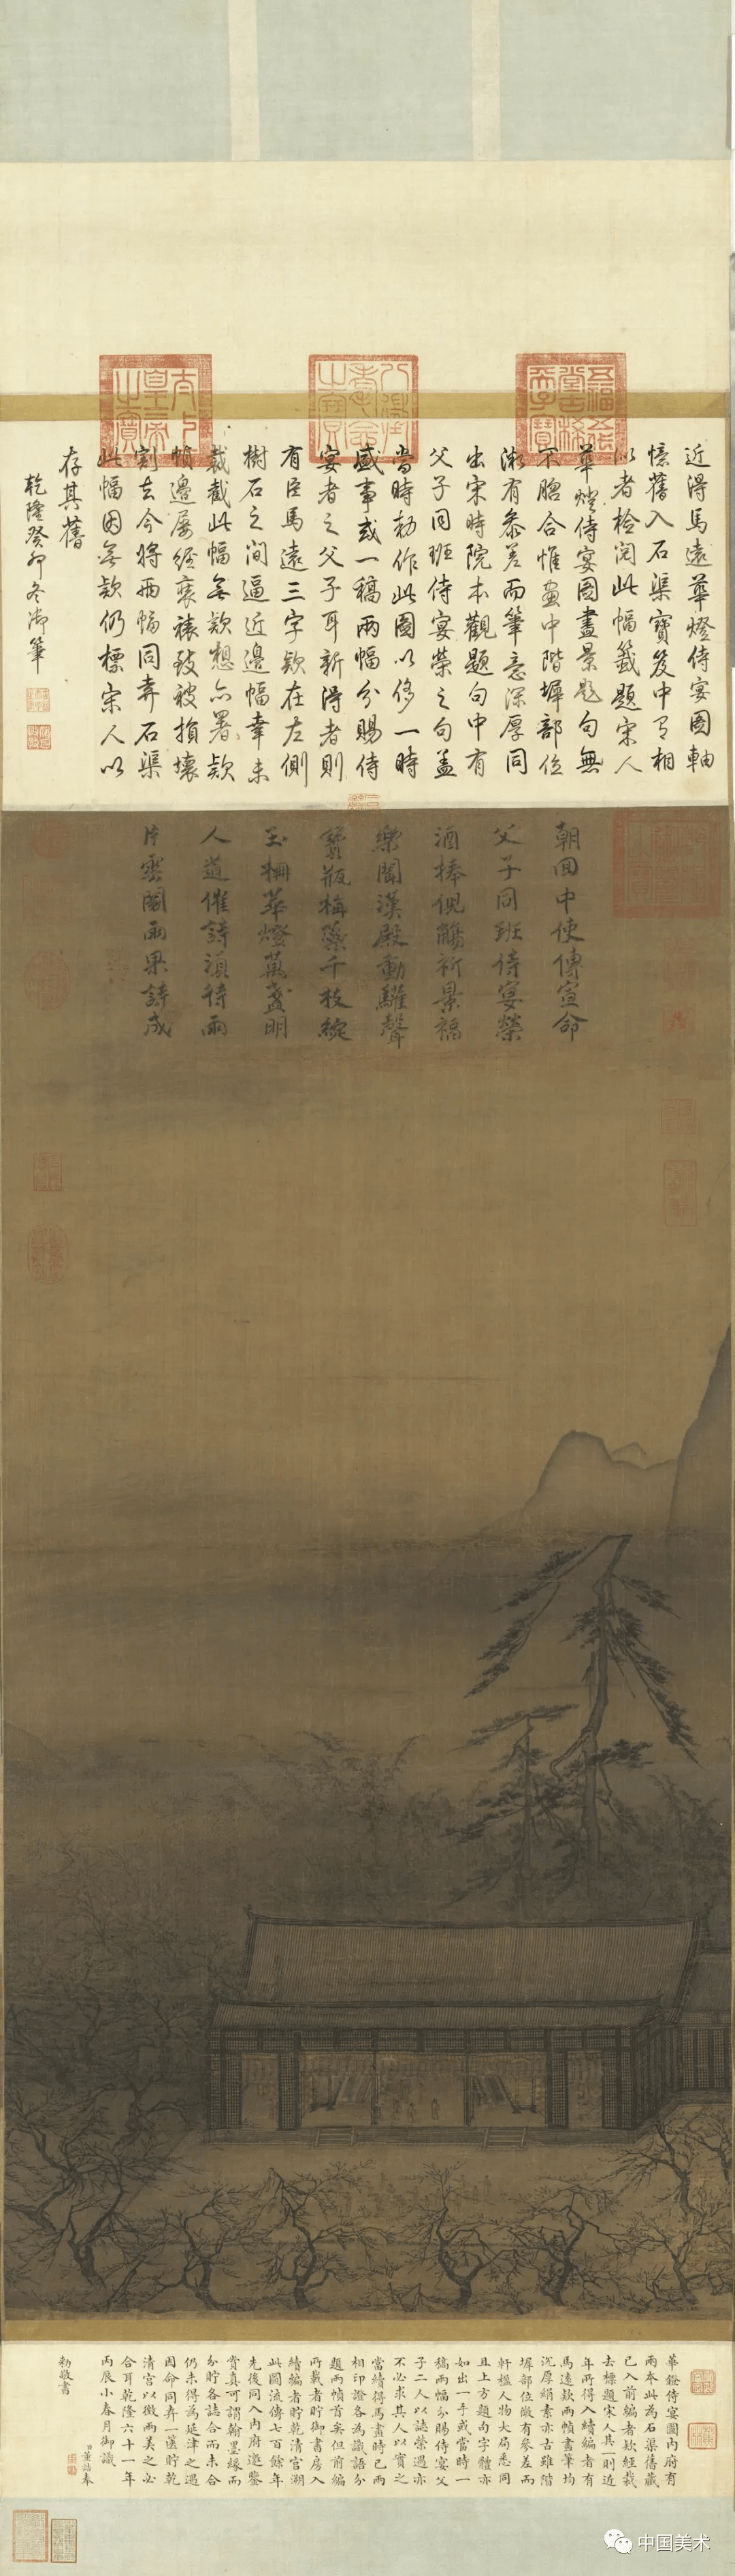 近得馬遠華燈侍宴圖軸
憶舊入石渠寶笈中有相
似者檢閱此幅籤題宋人
華燈侍宴圖畫景題句無
不脗合惟畫中階墀部位
微有參差而筆意深厚同
出宋時院本觀題句中有
父子同班侍宴榮之句蓋
當時勅作此圖以侈一時
盛事或一稿兩幅分賜侍
宴者之父子耳新得者則
有臣馬遠三字款在左側
樹石之間逼近邊幅幸未
裁截此幅無款想亦署款
幀邊屢經裝裱致被損壞
割去今將兩幅同弆石渠
此幅因無款仍標宋人以
存其舊
乾隆癸卯冬御筆
五福五代堂古稀天子寶
八徵耄念之寶
太上皇帝之寶
朝回中使傳宣命
父子同班侍宴榮
酒捧倪觴祈景福
樂聞漢殿動驩聲
寶瓶梅蘂千枝綻
玉栅華燈萬盞明
人道催詩須待雨
片雲閣雨果詩成
華鐙侍宴圖內府有
兩本此為石渠舊藏
已入前編者款經裁
去標題宋人其一則近
年所得入續編者有
馬遠款兩幀畫筆均
沉厚絹素亦古雖階
墀部位微有參差而
軒楹人物大局悉同
且上方題句字體亦
如出一手或當時一
稿兩幅分賜侍宴父
子二人以誌榮遇亦
不必求其人以實之
當續得馬畫時已兩
相印證各為識語分
題兩幀首矣但前編
所載者貯御書房入
續編者貯乾清宮溯
此圖流傳七百餘年
先後同入內府邀鑒
賞真可謂翰墨緣而
分貯各誌合而未合
仍未得為延津之遇
因命同弆一篋貯乾
清宮以徵兩美之必
合耳乾隆六十一年
丙辰小春月御識
臣董誥奉
勅敬書
中国美术